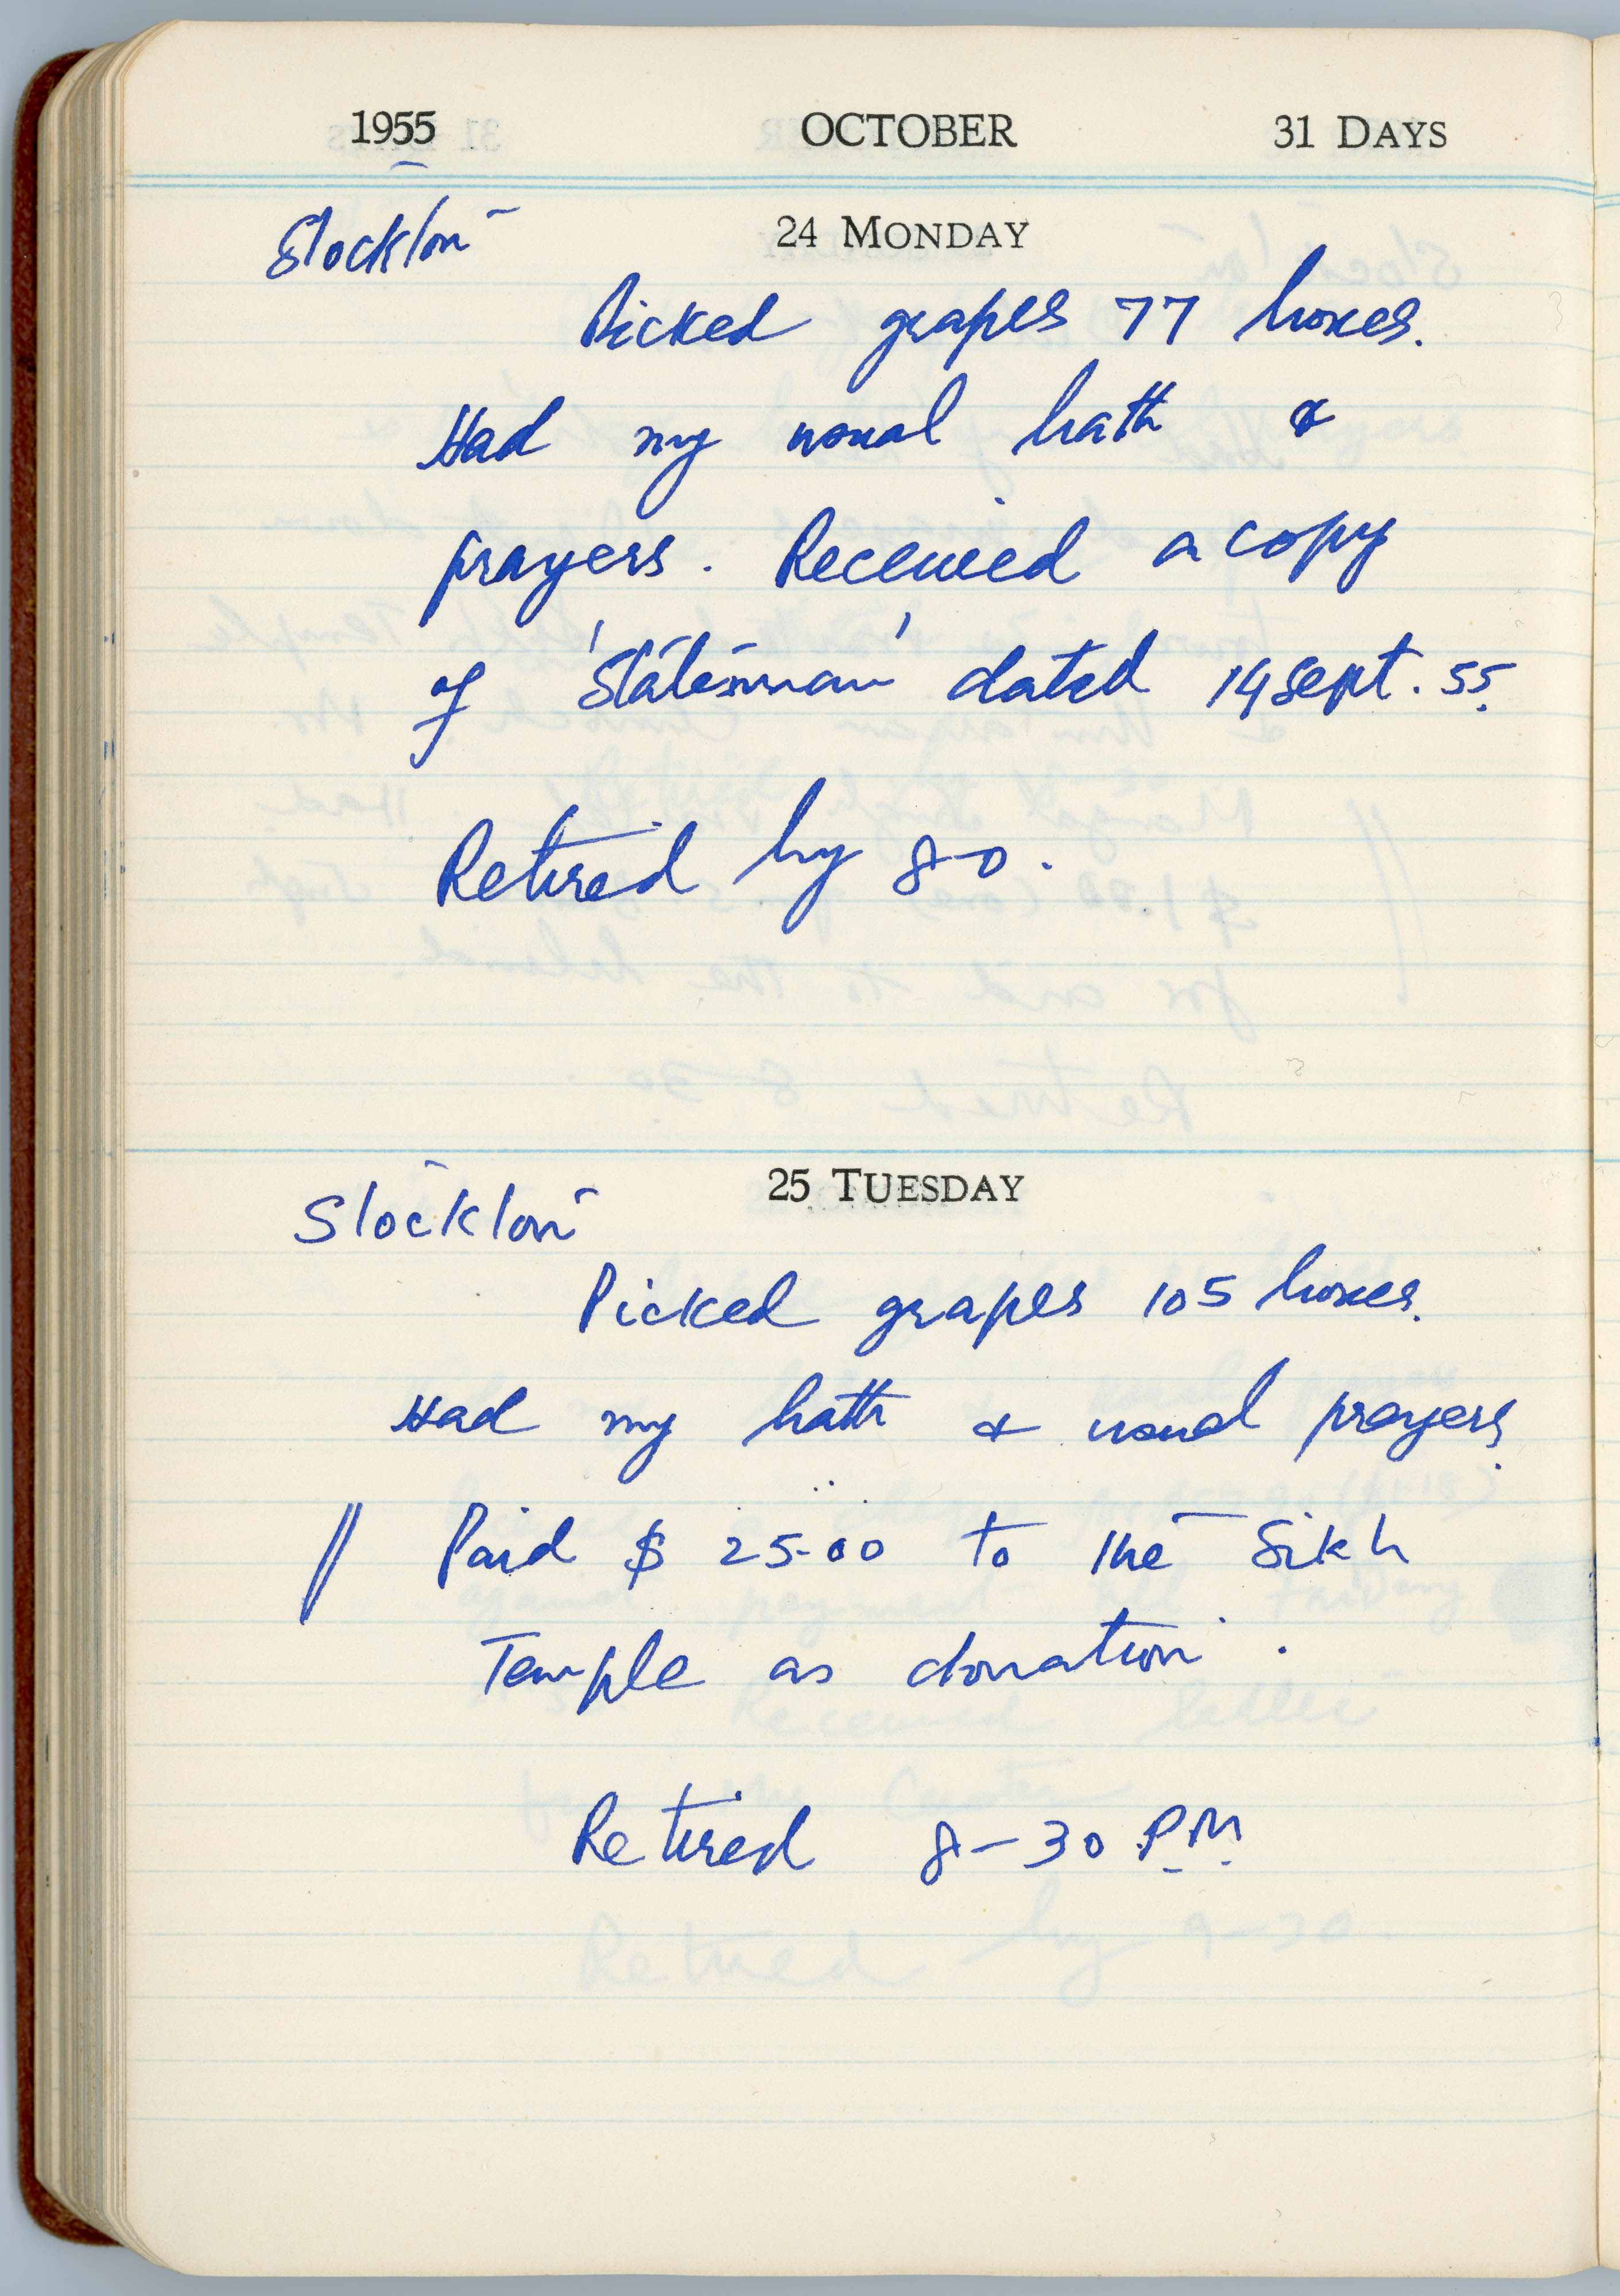 1955 OCTOBER 31 DAYS
24 MONDAY
Stockton
Picked grapes 77 boxes.
Had my usual bath &
prayers. Received a copy
of 'Statesman' dated 14 Sept. 55.
Retired by 8-0.
25 TUESDAY
Stockton
Picked grapes 105 boxes.
Had my bath & usual prayers.
// Paid $ 25-00 to the Sikh
Temple as donation.
Retired 8-30 P.M.